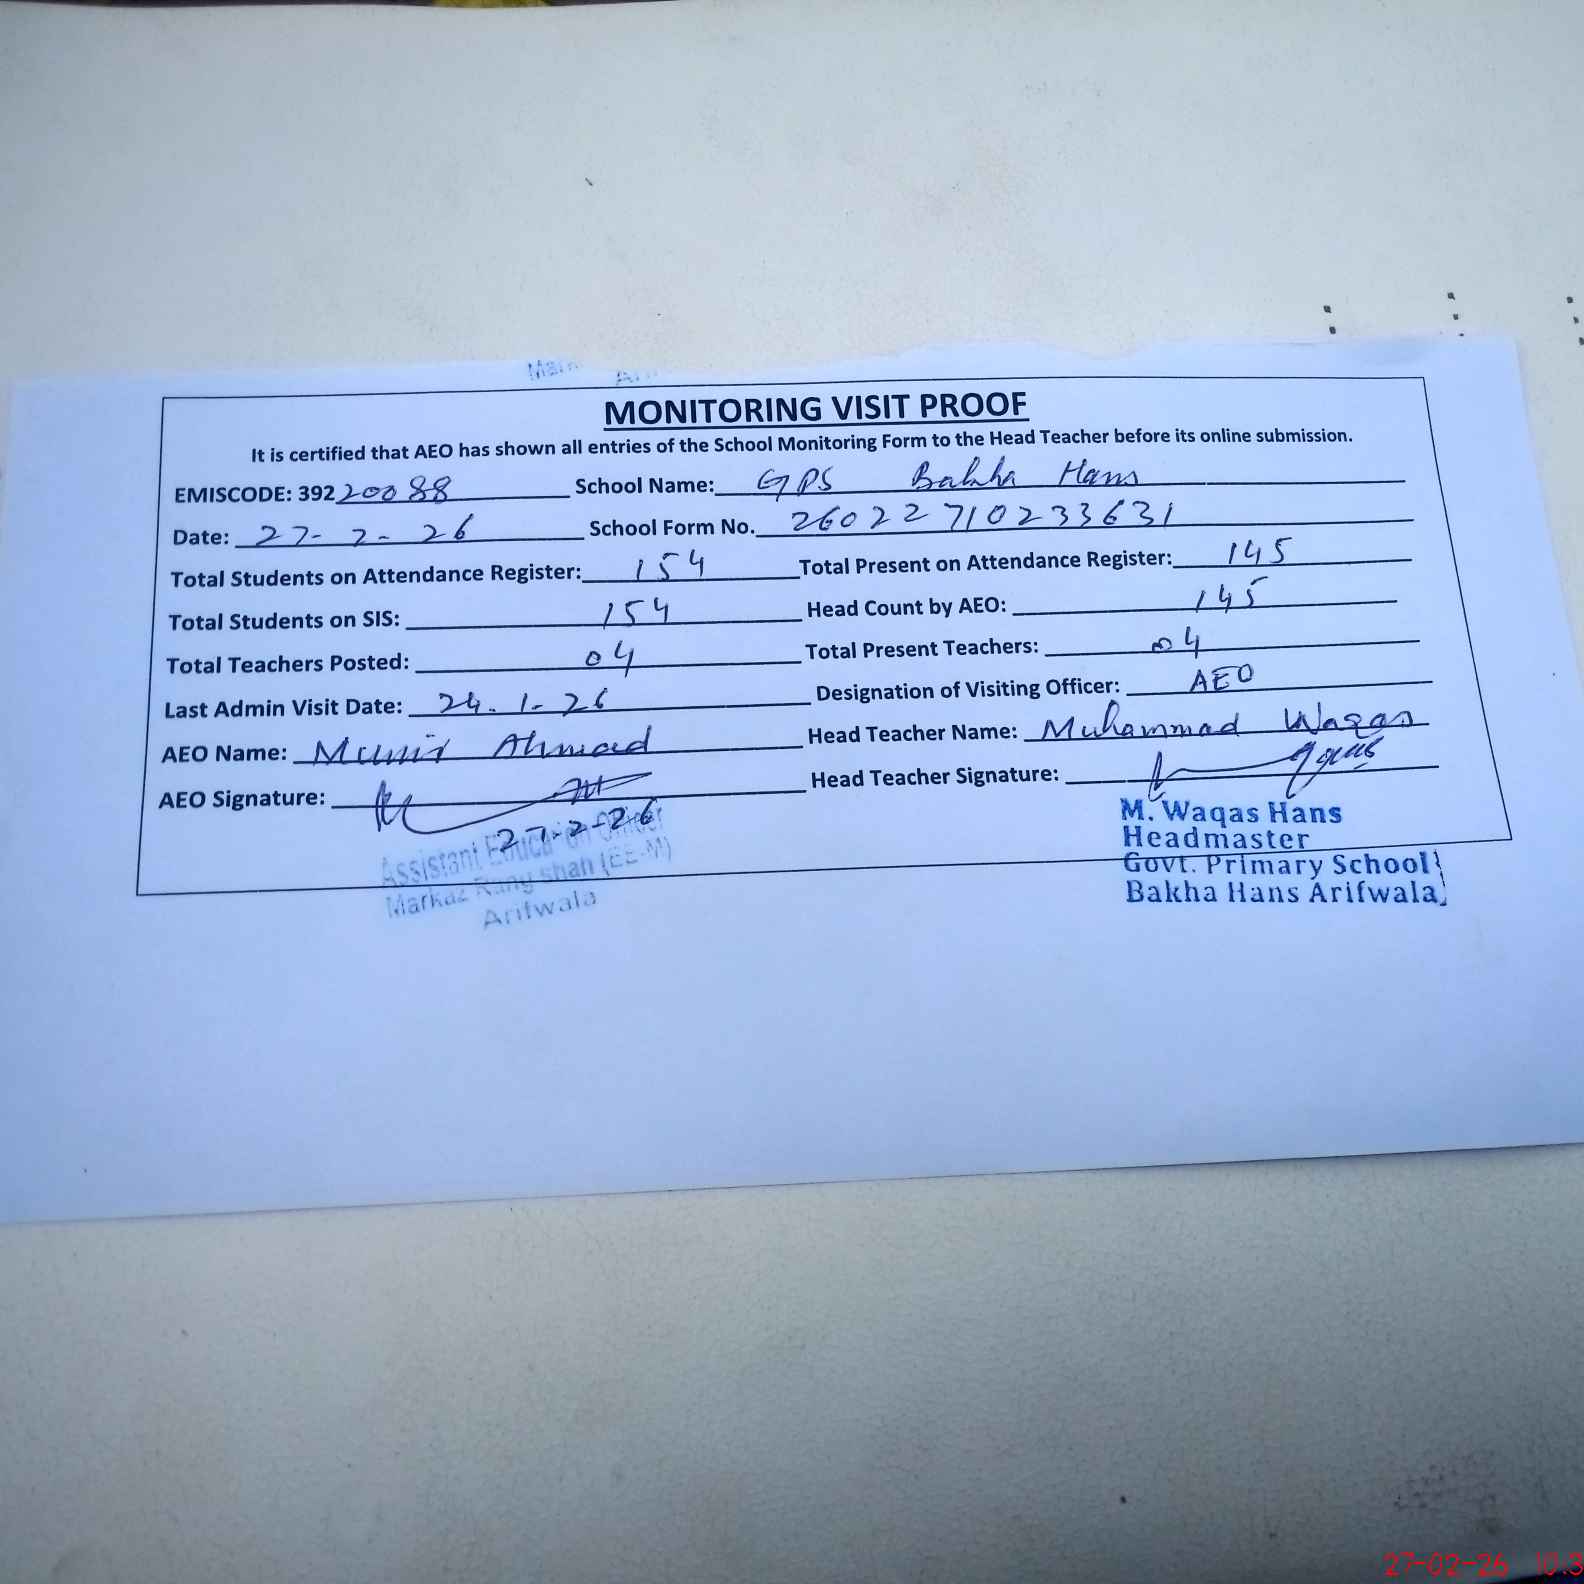 MONITORING VISIT PROOF
It is certified that AEO has shown all entries of the School Monitoring Form to the Head Teacher before its online submission.
EMISCODE: 39220088 School Name: GPS Bakha Hans
Date: 27-2-26 School Form No. 26022710233631
Total Students on Attendance Register: 154 Total Present on Attendance Register: 145
Total Students on SIS: 154 Head Count by AEO: 145
Total Teachers Posted: 04 Total Present Teachers: 04
Last Admin Visit Date: 24.1-26 Designation of Visiting Officer: AEO
AEO Name: Munir Ahmad Head Teacher Name: Muhammad Waqas
AEO Signature: Head Teacher Signature:
27-2-26
Assistant Education Officer
Markaz shan (EE-M)
Arifwala
M. Waqas Hans
Headmaster
Govt. Primary School
Bakha Hans Arifwala
27-02-26 10:3